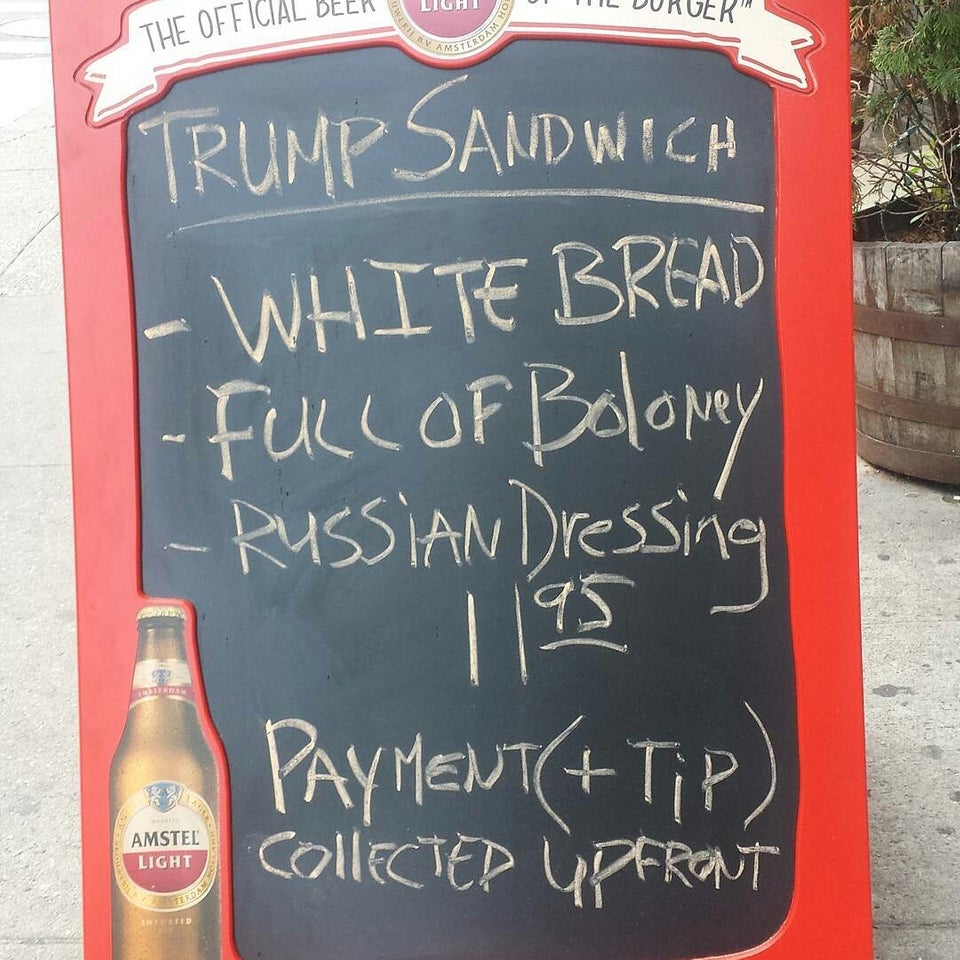 THE OFFICIAL BEER OF THE BURGER™
LIGHT
B.V. AMSTERDAM HO
TRUMP SANDWICH
- WHITE BREAD
- FULL OF BOLONEY
- RUSSIAN Dressing
11 95
PAYMENT (+ TiP)
COllECTED UPFRONT
AMSTERDAM
IMPORTED
AMSTEL
LIGHT
IMPORTED